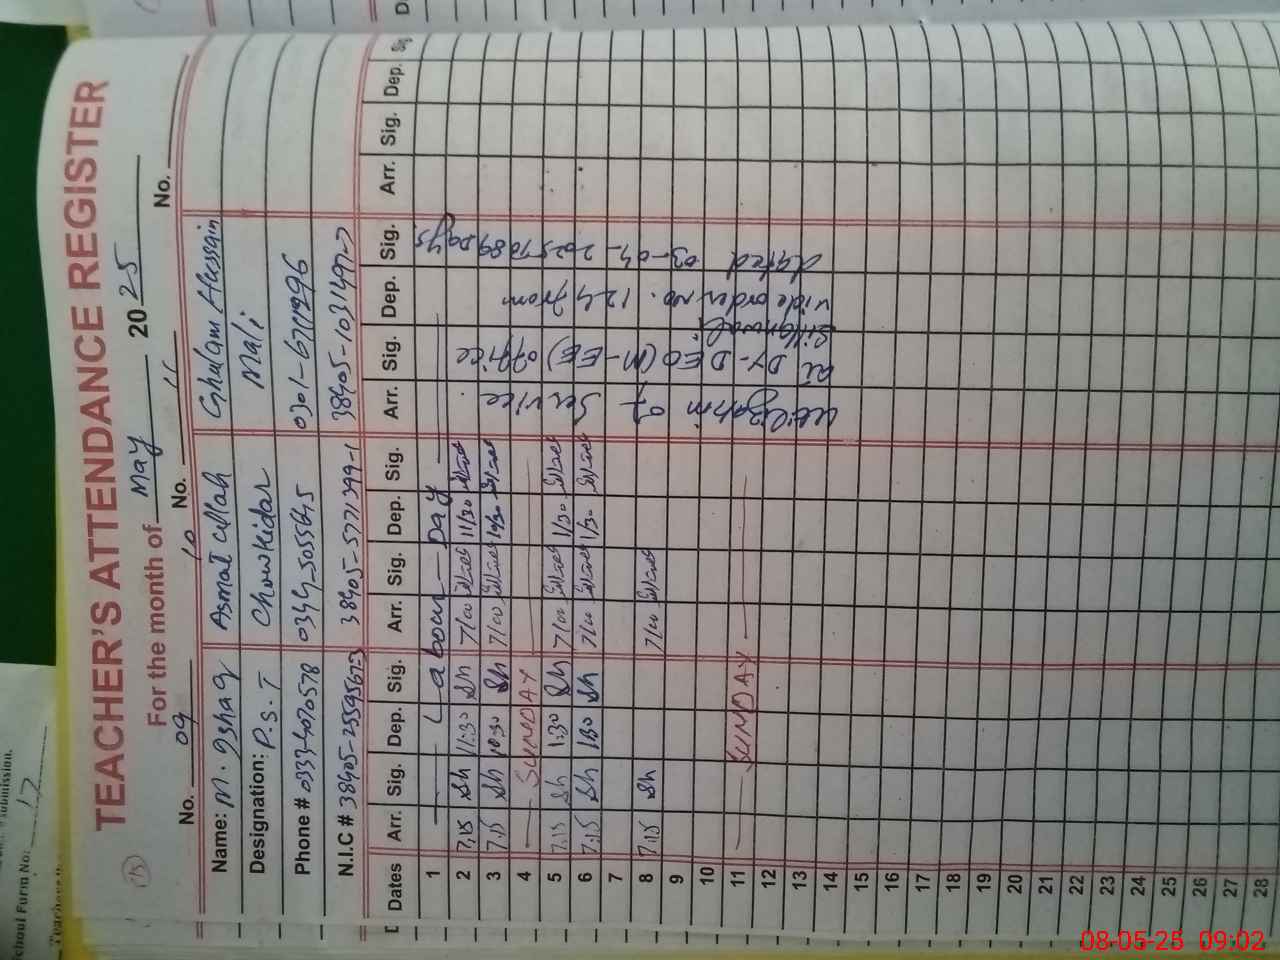 TEACHER'S ATTENDANCE REGISTER
For the month of May 2025
No. 09 No. 10 No. 11 No.
Name: M. Ishaq Asmat ullah Ghulam Hussain
Designation: P.S.T Chowkidar Mali
Phone # 03334070578
N.I.C # 38405-5771399-1
Dates Arr. Sig. Dep. Sig. Arr. Sig. Dep. Sig. Arr. Sig. Dep. Sig. Arr. Sig. Dep. Sig.
1 Labour Day
2 7.15 Sh 11:30 Sh 7/00 11/30
3 7.15 Sh 10:30 Sh 7/00 10/30
4 SUNDAY
5 7.15 Sh 1:30 Sh 7/00 1/30
6 7:15 Sh 1:30 Sh 7/00 1/30
7
8 7:15 Sh 7/00
9
10
11 SUNDAY
12
13
14
15
16
17
18
19
20
21
22
23
24
25
26
27
28
utilization of Service
at DY-DEO (M-EE) office
Sillanwali
vide order no. 124 from
dated 03-04-2025 To 89 Days
chool Form No: 17
submission.
08-05-25 09:02